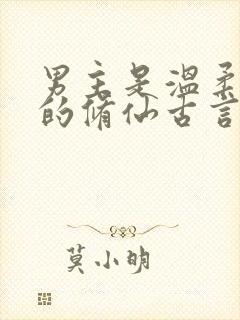 男主是温柔
的修仙古言
莫小明